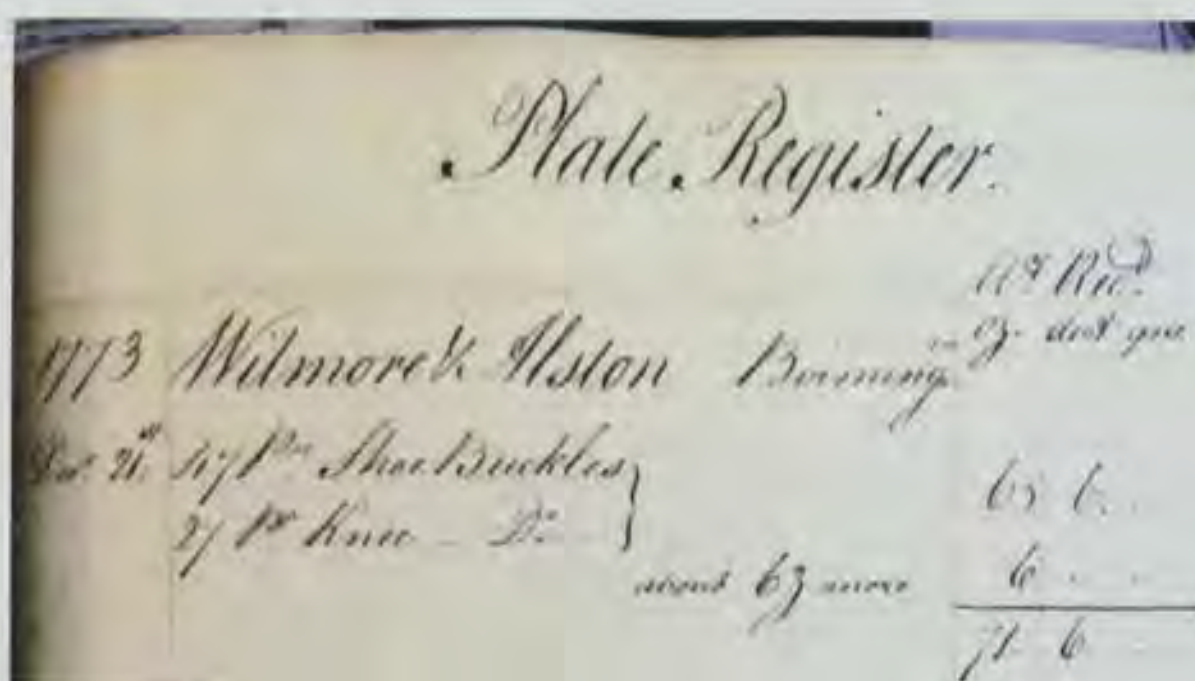 Plate Register.
Wt Recd.
oz. dwt grs
1773 Wilmore & Alston Birming
Dec. 21st 47 Prs Shoe Buckles
27 Pr Knee - Do.
65 6
about 6 oz more 6
71 6